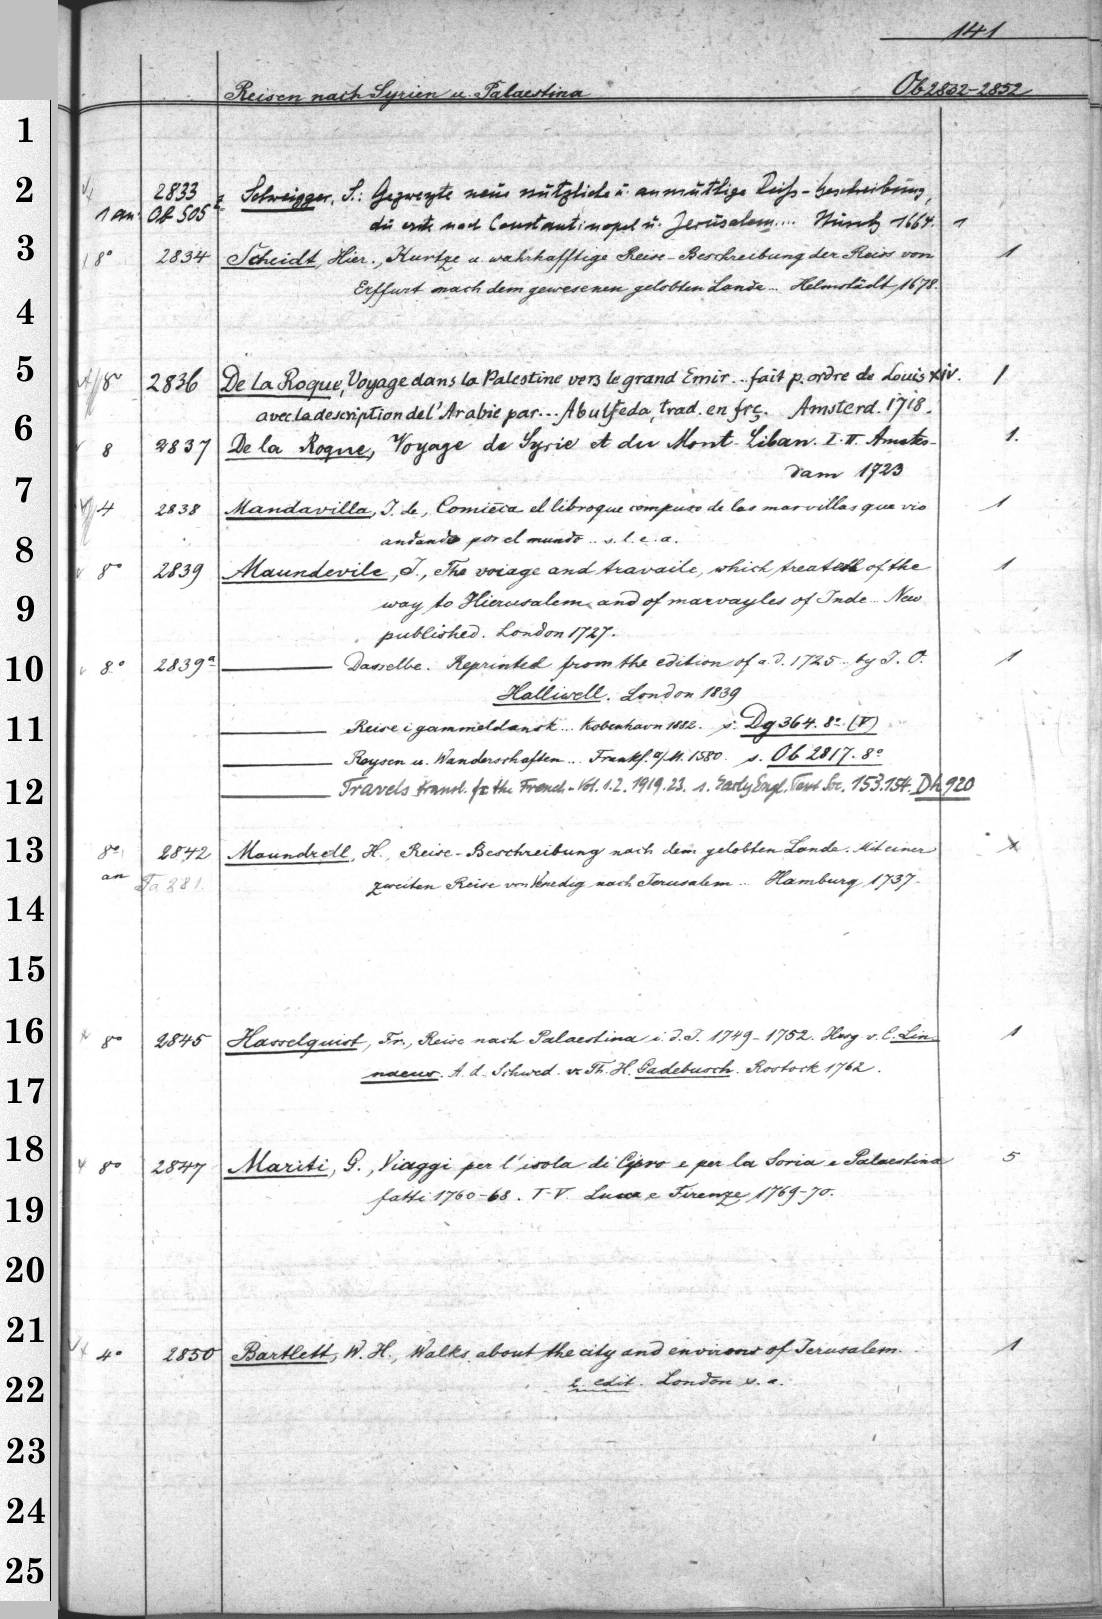 141
Reisen nach Syrien u. Palaestina Ob 2832-2852
1
2
3
4
5
6
7
8
9
10
11
12
13
14
15
16
17
18
19
20
21
22
23
24
25
2833 Schweigger, S.: Gezweyte neue nützliche u. anmüthige Reiß-beschreibung,
1 an: Ob 505 die erste nach Constantinopel u. Jerusalem.... Nürnb 1664. 1
8° 2834 Scheidt, Hier., Kurtze u. wahrhafftige Reise-Beschreibung der Reise von 1
Erffurt nach dem gewesenen gelobten Lande... Helmstädt, 1678.
8° 2836 De La Roque, Voyage dans la Palestine vers le grand Emir... fait p. ordre de Louis XIV. 1
avec la description de l'Arabie par... Abulfeda, trad. en frç. Amsterd. 1718.
8 2837 De la Roque, Voyage de Syrie et du Mont-Liban. I. II. Amster- 1.
dam 1723
4 2838 Mandavilla, J. de, Comiēca el libro que compuso de las marvillas que vio 1
andando por el mundo... s. l. e. a.
8° 2839 Maundevile, J., The voiage and travaile, which treateth of the 1
way to Hierusalem and of marvayles of Inde... New
published. London 1727.
8° 2839a ——— Dasselbe. Reprinted from the edition of a. d. 1725.. by J. O. 1
Halliwell. London 1839
——— Reise i gammeldansk... Kobenhavn 1882. s. Dg 364. 8° (V)
——— Reysen u. Wanderschaften... Frankf. a/M. 1580. s. Ob 2817. 8°
——— Travels transl. fr the French. - Vol. 1.2. 1919.23. s. Early Engl. Text Soc. 153.154. Dh 920
8° 2842 Maundrell, H., Reise-Beschreibung nach dem gelobten Lande. Mit einer x
an Ta 881. zweiten Reise von Venedig nach Jerusalem... Hamburg, 1737.
8° 2845 Hasselquist, Fr., Reise nach Palaestina i. d. J. 1749-1752. Hrsg v. C. Lin- 1
naeus. A. d. Schwed. v. Th. H. Gadebusch. Rostock 1762.
8° 2847 Mariti, G., Viaggi per l'isola di Cipro e per la Soria e Palaestina 5
fatti 1760-68. I-V. Lucca e Firenze, 1769-70.
4° 2850 Bartlett, W. H., Walks about the city and environs of Jerusalem. 1
2. edit. London s. a.